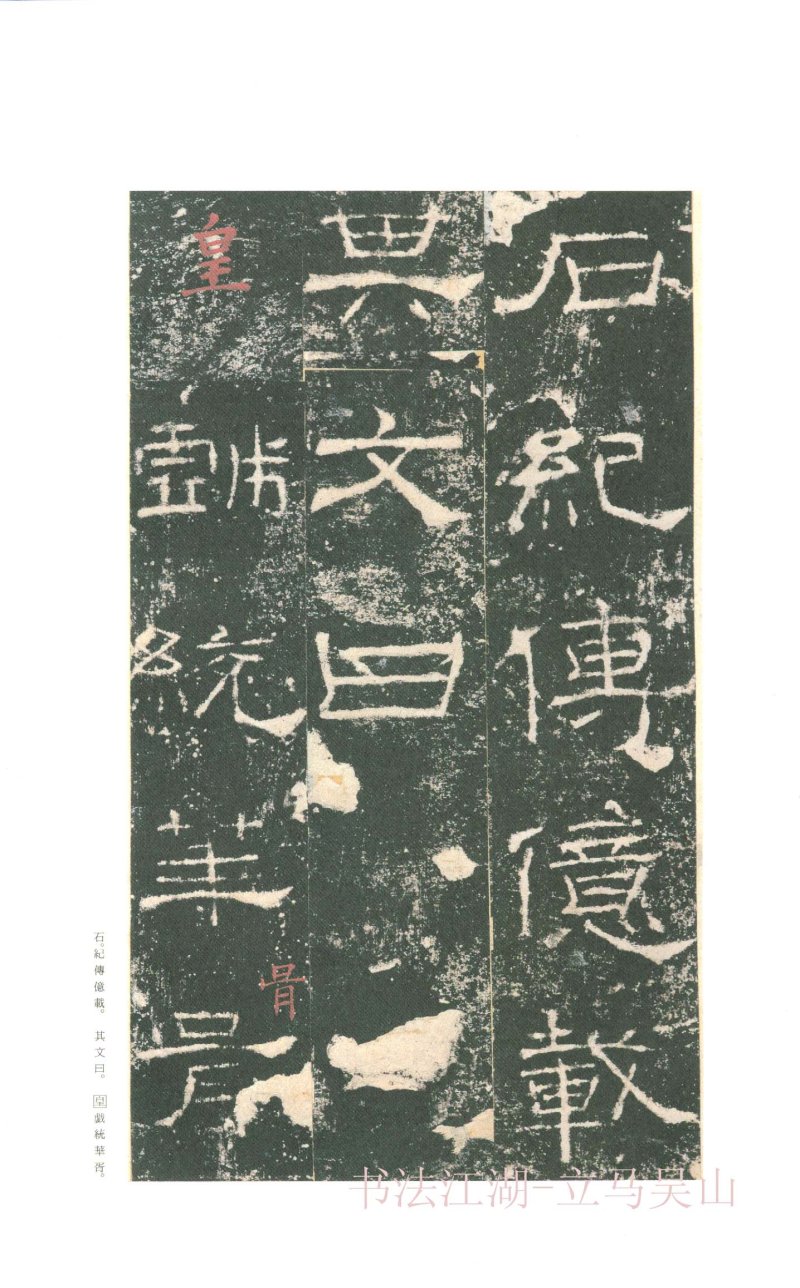 石紀傳億載
其文曰
皇戲統華胥
骨
石。紀傳億載。 其文曰。 皇戲統華胥。
书法江湖-立马吴山